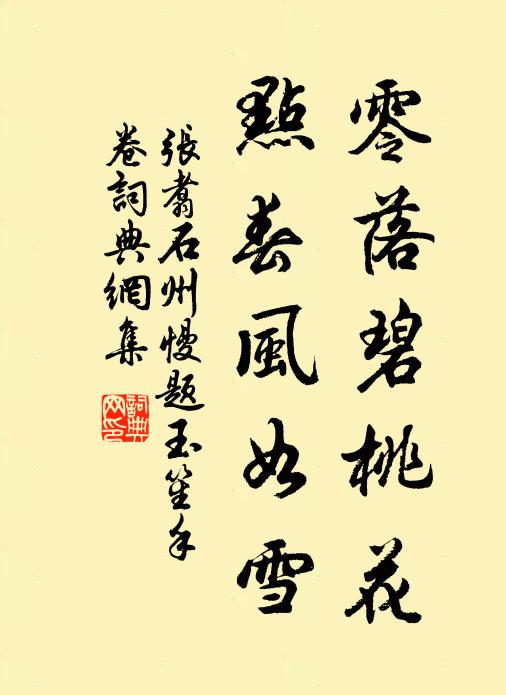 零落碧桃花
點春風如雪
張翥石州慢題玉笙手
卷詞典網集
詞典網印